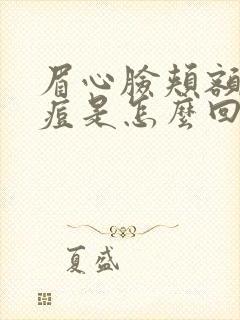 眉心臉頰額
痘是怎麼回
夏盛